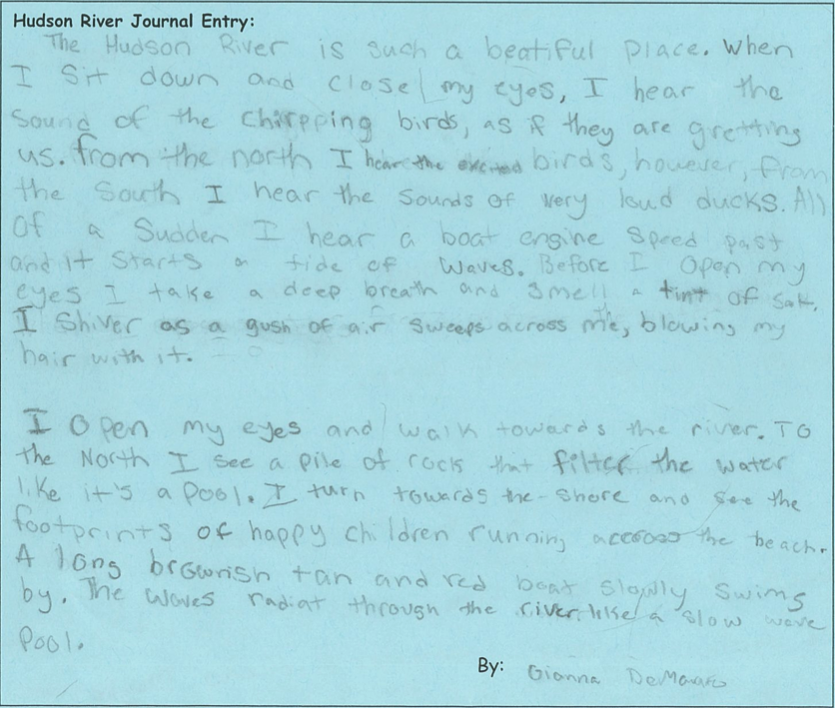 Hudson River Journal Entry:
The Hudson River is such a beatiful place. When
I sit down and close my eyes, I hear the
sound of the chirpping birds, as if they are gretting
us. from the north I hear the excited birds, however, from
the South I hear the sounds of very loud ducks. All
of a sudden I hear a boat engine speed past
and it starts a tide of waves. Before I open my
eyes I take a deep breath and smell a tint of salt.
I shiver as a gush of air sweeps across me, blowing my
hair with it.
I open my eyes and walk towards the river. To
the North I see a pile of rock that filter the water
like it's a pool. I turn towards the shore and see the
footprints of happy children running accross the beach.
A long brownish tan and red boat slowly swims
by. The waves radiat through the river like a slow wave
pool.
By: Gianna